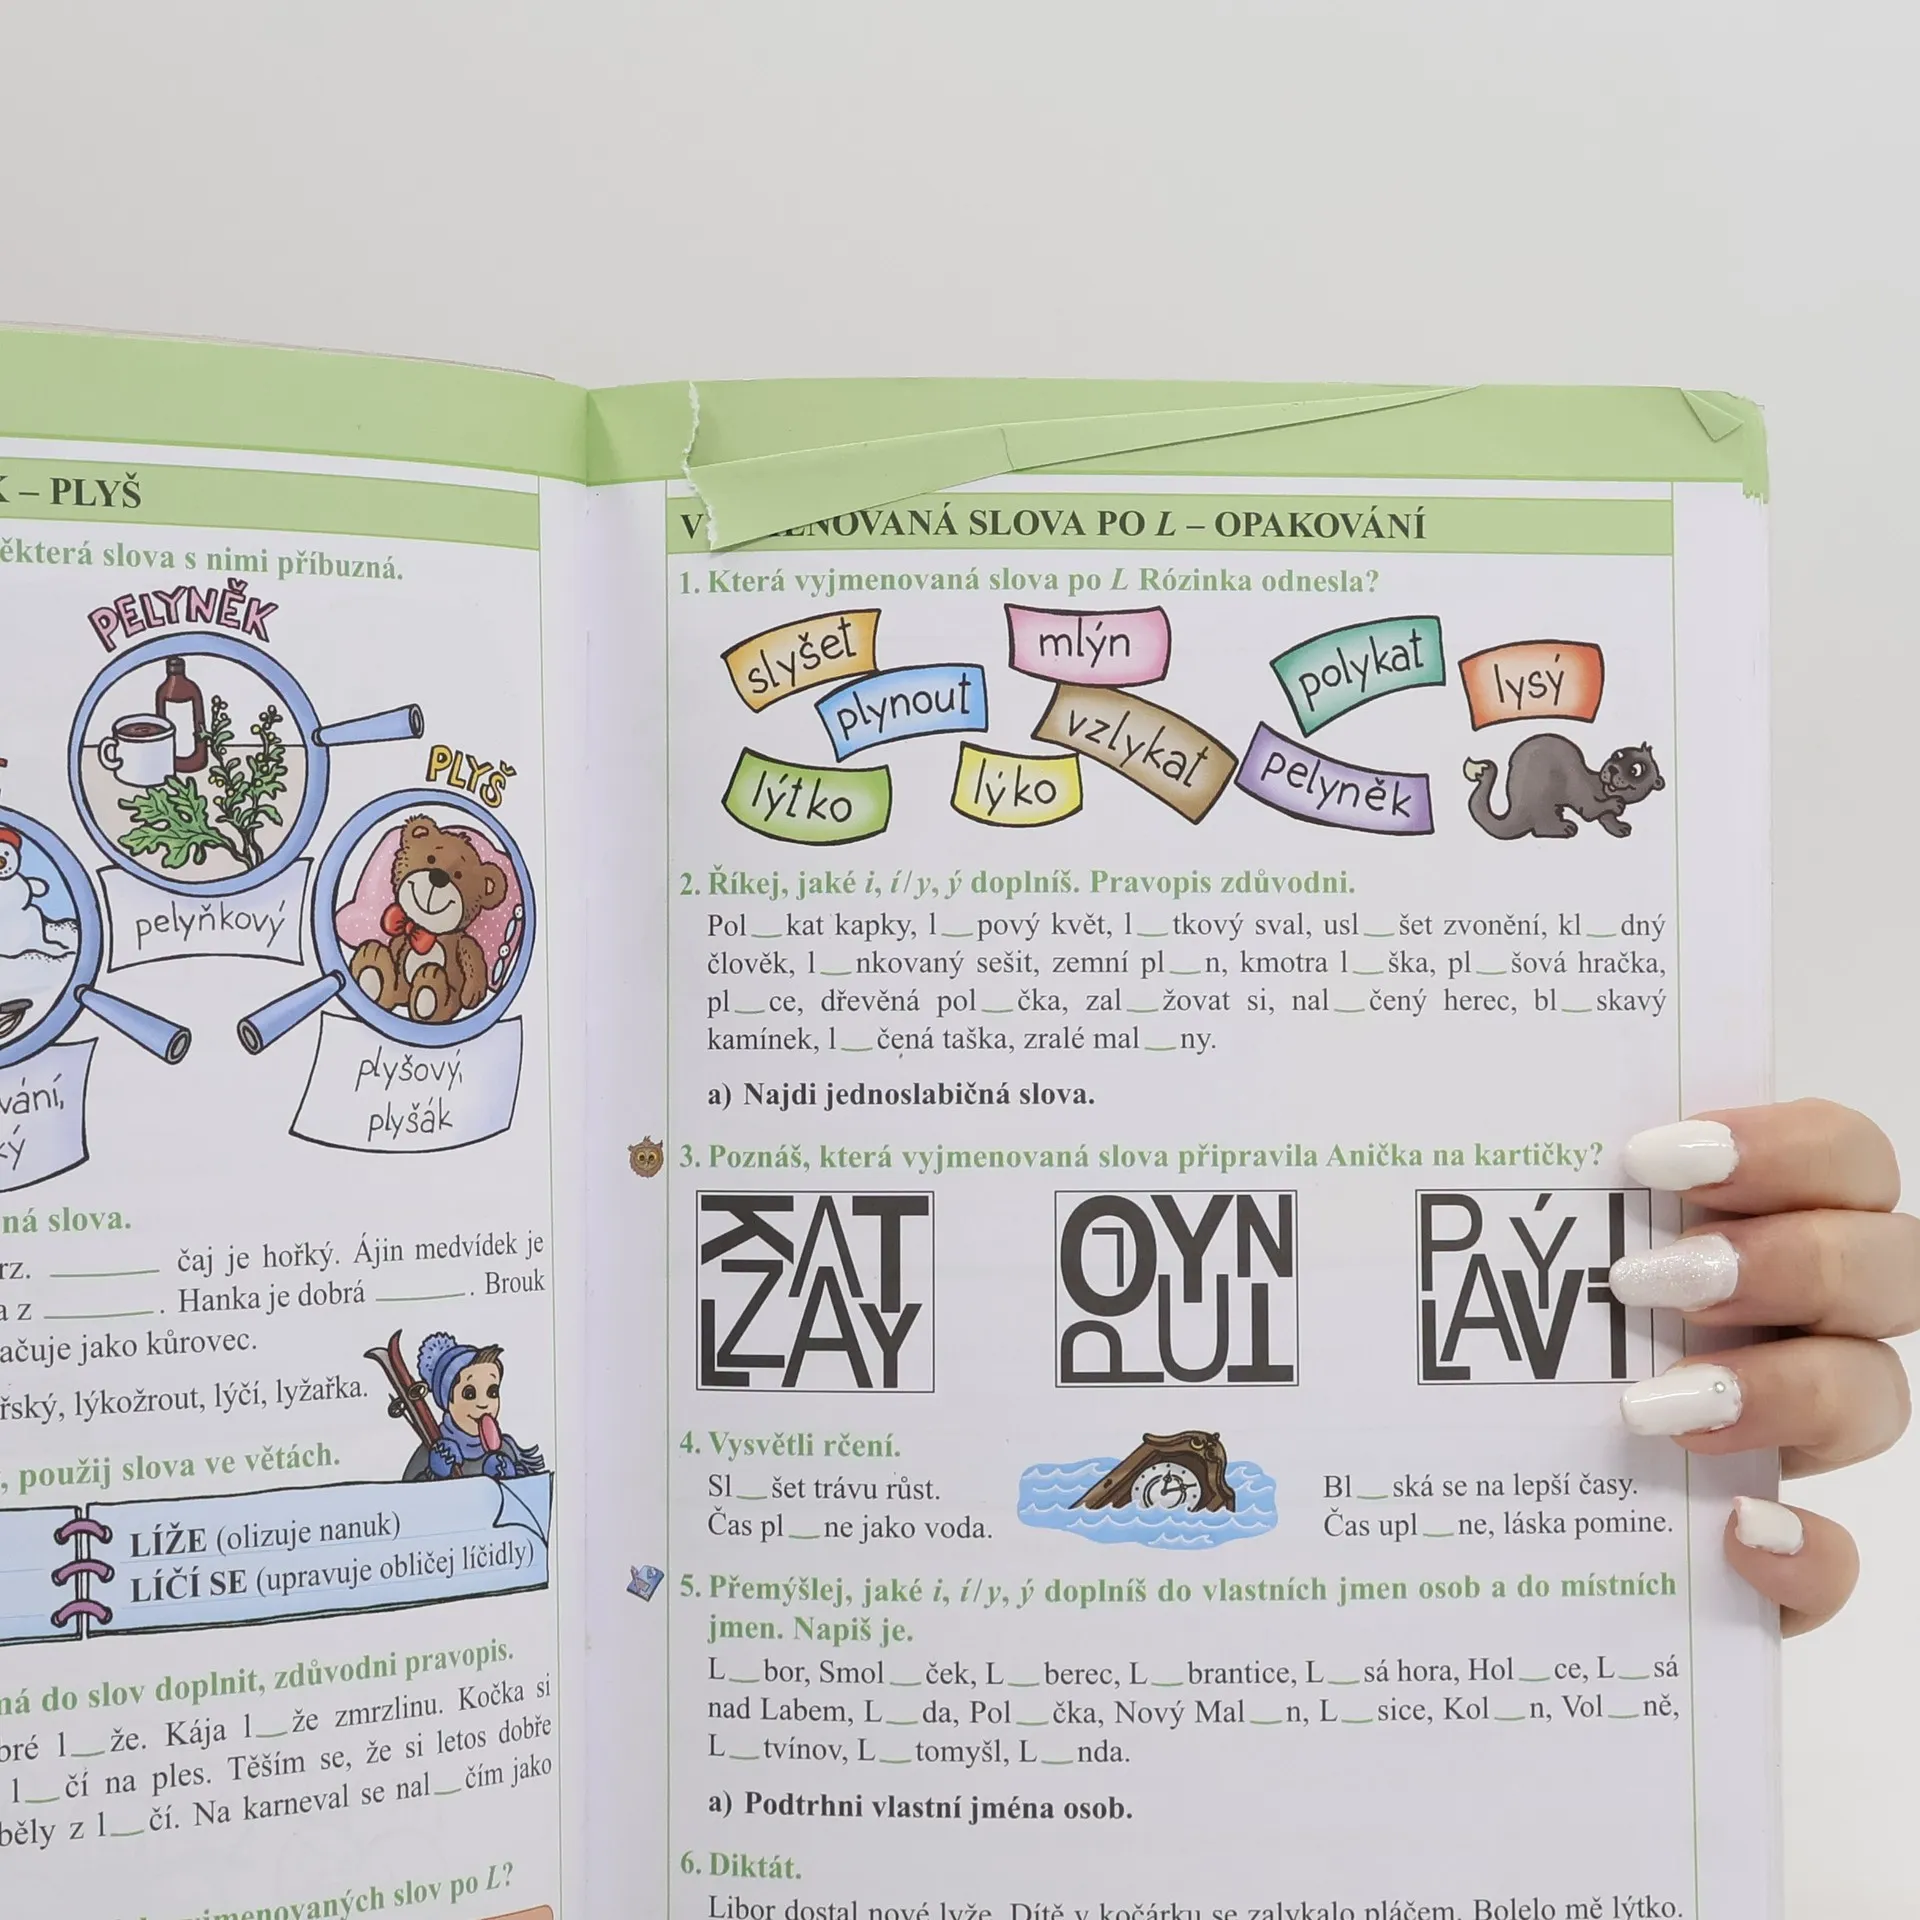 – PLYŠ
některá slova s nimi příbuzná.
PELYNĚK
PLYŠ
pelyňkový
plyšový,
plyšák
ná slova.
čaj je hořký. Ájin medvídek je
a z ______. Hanka je dobrá ______. Brouk
jako kůrovec.
lýkožrout, lýčí, lyžařka.
použij slova ve větách.
LÍŽE (olizuje nanuk)
LÍČÍ SE (upravuje obličej líčidly)
má do slov doplnit, zdůvodni pravopis.
l__že. Kája l__že zmrzlinu. Kočka si
l__čí na ples. Těším se, že si letos dobře
z l__čí. Na karneval se nal__čím jako
vyjmenovaných slov po L?
NOVANÁ SLOVA PO L – OPAKOVÁNÍ
1. Která vyjmenovaná slova po L Rózinka odnesla?
slyšet
mlýn
polykat
lysý
plynout
vzlykat
lýtko
lýko
pelyněk
2. Říkej, jaké i, í/y, ý doplníš. Pravopis zdůvodni.
Pol__kat kapky, l__pový květ, l__tkový sval, usl__šet zvonění, kl__dný
člověk, l__nkovaný sešit, zemní pl__n, kmotra l__ška, pl__šová hračka,
pl__ce, dřevěná pol__čka, zal__žovat si, nal__čený herec, bl__skavý
kamínek, l__čená taška, zralé mal__ny.
a) Najdi jednoslabičná slova.
3. Poznáš, která vyjmenovaná slova připravila Anička na kartičky?
KAT
LZAY
OLYN
PUT
PÝT
LAV
4. Vysvětli rčení.
Sl__šet trávu růst.
Čas pl__ne jako voda.
Bl__ská se na lepší časy.
Čas upl__ne, láska pomine.
5. Přemýšlej, jaké i, í/y, ý doplníš do vlastních jmen osob a do místních
jmen. Napiš je.
L__bor, Smol__ček, L__berec, L__brantice, L__sá hora, Hol__ce, L__sá
nad Labem, L__da, Pol__čka, Nový Mal__n, L__sice, Kol__n, Vol__ně,
L__tvínov, L__tomyšl, L__nda.
a) Podtrhni vlastní jména osob.
6. Diktát.
Libor dostal nové lyže. Dítě v kočárku se zalykalo pláčem. Bolelo mě lýtko.